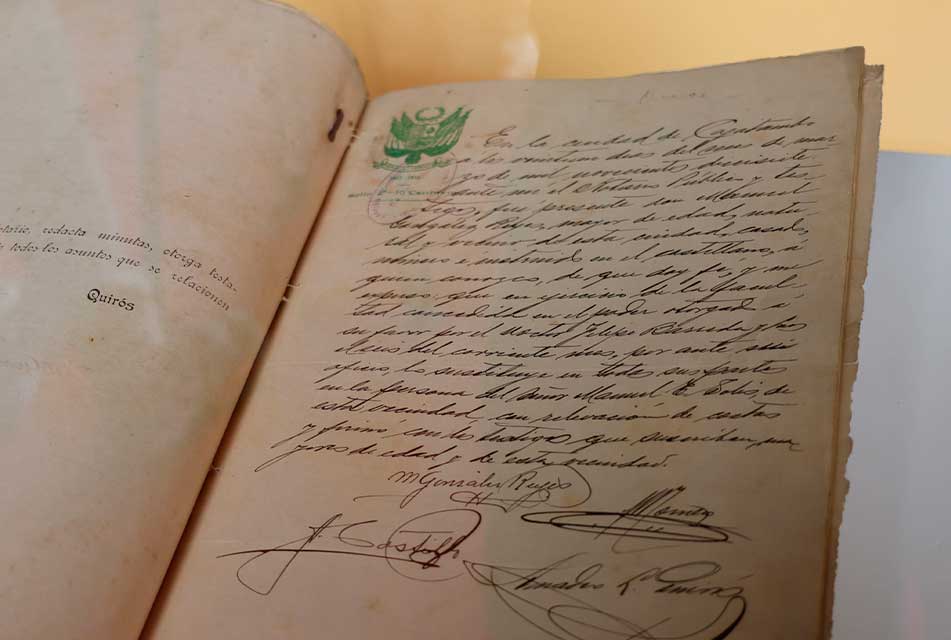 notario, redacta minutas, otorga testa-
todos los asuntos que se relacionen
Quirós
En la ciudad de Cajatambo
a los veintiun dias del mes de mar
zo de mil novecientos diecisiete
ante mi el Notario Público y tes
tigos, fué presente don Manuel
González Reyes, mayor de edad, natu
ral y vecino del esta ciudad, casado,
minero e instruido en el castellano, á
quien conozco, de que doy fe, y me
expuso: que en ejercicio de la facul
tad concedida en el poder otorgado á
su favor por el doctor Felipe Barreda y
del corriente mes, por ante mi
oficio, lo sustituye en todas sus partes
en la persona del señor Manuel E. Solis, de
esta vecindad, con relevación de costas
y firmó con los testigos que suscriben, ma
yores de edad y de esta vecindad.
M González Reyes
A. Casto
Amadeo